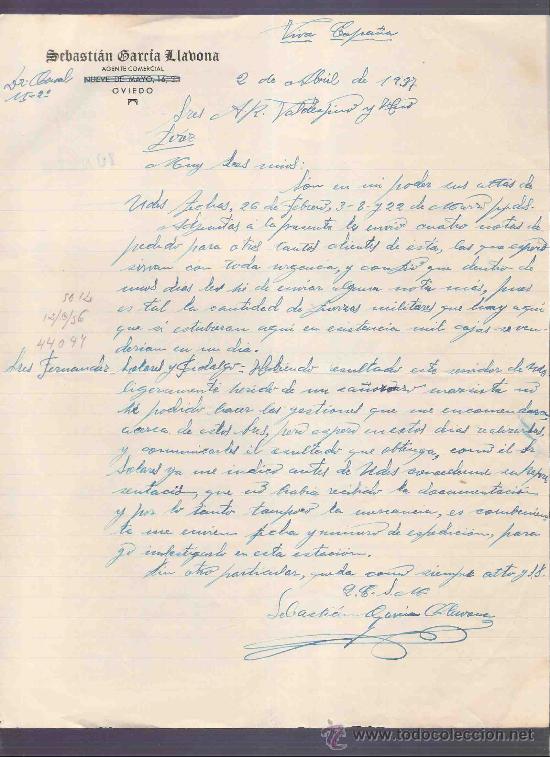 Viva España
Sebastián García Llavona
AGENTE COMERCIAL
NUEVE DE MAYO, 16, 2º
OVIEDO
Dr. Casal
15-2º
2 de Abril de 1937
Sres A. R. Valdespino y Hno
Jerez
Muy Sres mios:
Son en mi poder sus attas de
Udes fechas, 26 de Febrero, 3-8-y 22 de Marzo ppdo.
Adjuntas á la presente les envio cuatro notas de
pedido para otros tantos clientes de esta, las que espero
sirvan con toda urgencia, y confio que dentro de
unos dias les hé de enviar alguna nota más, pues
es tal la cantidad de fuerzas militares que hay aquí
que si estuberan aquí en existencia mil cajas se ven-
derian en un dia.
5014
12/9/36
44097
Sres Fernandez Solares y Fidalgo - Habiendo resultado este servidor de Udes
ligeramente herido de un cañonazo marxista no
hé podido hacer las gestiones que me encomendaron
acerca de estos Sres, pero espero en estos dias realizarlas
y comunicarles el resultado que obtenga, como el Sr
Solares ya me indicó antes de Udes concederme su repre-
sentación, que no habia recibido la documentación
y por lo tanto tampoco la mercancia, es conveniente
me envien fecha y numero de expedición, para
yó investigarlo en esta estación.
Sin otro particular, queda como siempre atto y S.S.
Q. E. S. M.
Sebastián García Llavona
www.todocoleccion.net